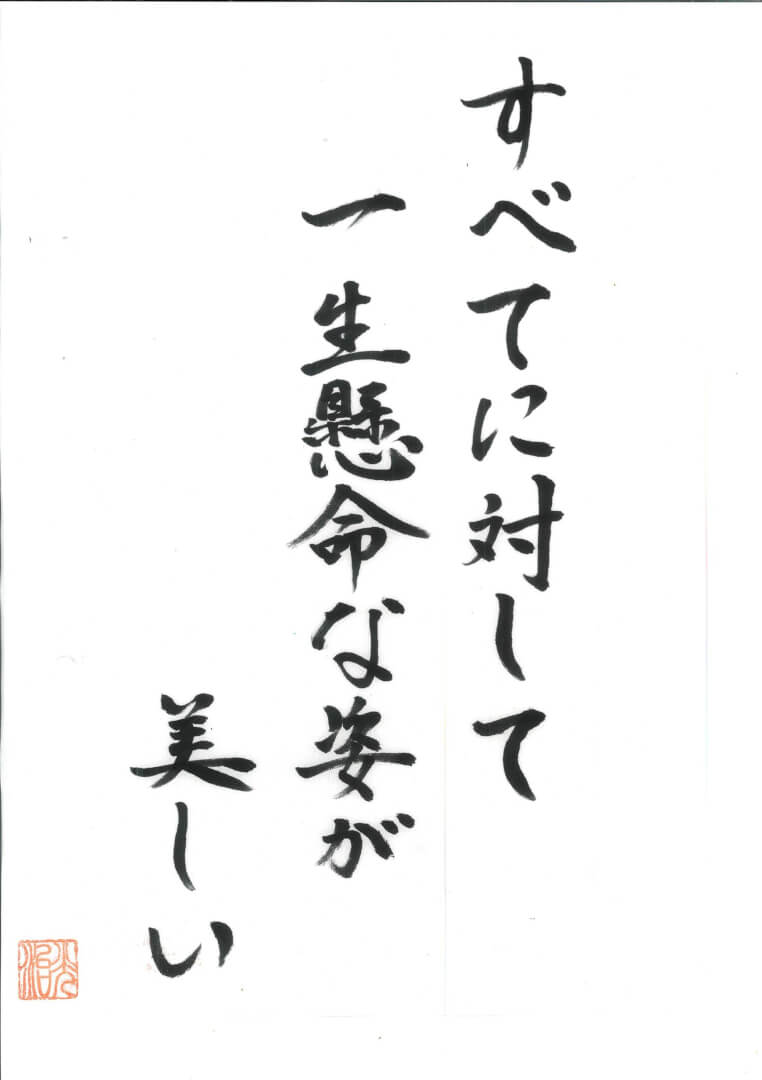 すべてに対して
一生懸命な姿が
美しい